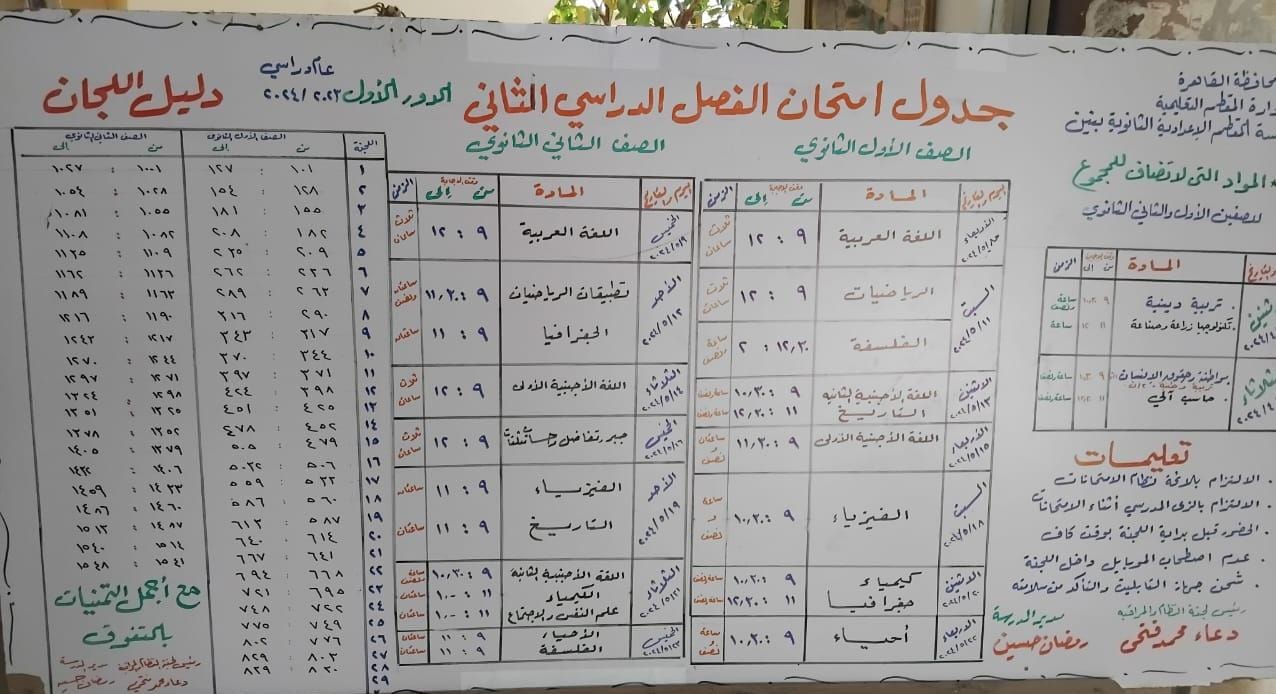 محافظة القاهرة
إدارة المقطم التعليمية
المقطم الإعدادية الثانوية بنين
المواد التى لا تضاف للمجموع
للصفين الأول والثانى الثانوي
المادة
من إلى
الزمن
تربية دينية
ساعة ونصف
تكنولوجيا زراعة وصناعة
ساعة
مواطنة وحقوق الإنسان
حاسب آلي
تعليمات
. الالتزام بلائحة نظام الامتحانات
. الالتزام بالزى المدرسي أثناء الامتحانات
. الحضور قبل بداية اللجنة بوقت كاف
. عدم اصطحاب الموبايل داخل اللجنة
. شحن جهاز التابليت والتأكد من سلامته
رئيس لجنة النظام والمراقبة
دعاء محمد فتحى
مدير المدرسة
رمضان حسين
جدول امتحان الفصل الدراسي الثانى
الدور الأول
عام دراسي
٢٠٢٣ / ٢٠٢٤
الصف الأول الثانوي
اليوم والتاريخ
المادة
من إلى
الزمن
الأربعاء ٢٠٢٤/٥/٨
اللغة العربية
٩ : ١٢
ثلاث ساعات
السبت ٢٠٢٤/٥/١١
الرياضيات
٩ : ١٢
ثلاث ساعات
الفلسفة
١٢,٣٠ : ٢
ساعة ونصف
الاثنين ٢٠٢٤/٥/١٣
اللغة الأجنبية الثانية
٩ : ١٠,٣٠
ساعة ونصف
التاريخ
١١ : ١٢,٣٠
ساعة ونصف
الأربعاء ٢٠٢٤/٥/١٥
اللغة الأجنبية الأولى
٩ : ١١,٣٠
ساعتان و نصف
السبت ٢٠٢٤/٥/١٨
الفيزياء
٩ : ١٠,٣٠
ساعة و نصف
الاثنين ٢٠٢٤/٥/٢٠
كيمياء
٩ : ١٠,٣٠
ساعة ونصف
جغرافيا
١١ : ١٢,٣٠
ساعة ونصف
الأربعاء ٢٠٢٤/٥/٢٢
أحياء
٩ : ١٠,٣٠
ساعة و نصف
الصف الثانى الثانوي
اليوم والتاريخ
المادة
من إلى
الزمن
الخميس ٢٠٢٤/٥/٩
اللغة العربية
٩ : ١٢
ثلاث ساعات
الأحد ٢٠٢٤/٥/١٢
تطبيقات الرياضيات
٩ : ١١,٣٠
ساعتان ونصف
الجغرافيا
٩ : ١١
ساعتان
الثلاثاء ٢٠٢٤/٥/١٤
اللغة الأجنبية الأولى
٩ : ١٢
ثلاث ساعات
الخميس ٢٠٢٤/٥/١٦
جبر وتفاضل وحساب مثلثات
٩ : ١٢
ثلاث ساعات
الأحد ٢٠٢٤/٥/١٩
الفيزياء
٩ : ١١
ساعتان
التاريخ
٩ : ١١
ساعتان
الثلاثاء ٢٠٢٤/٥/٢١
اللغة الأجنبية الثانية
٩ : ١٠,٣٠
ساعة ونصف
الكيمياء
١١ : ١٠٠
ساعتان
علم النفس والاجتماع
١١ : ١٠٠
ساعتان
الخميس ٢٠٢٤/٥/٢٣
الأحياء
٩ : ١١
ساعتان
الفلسفة
٩ : ١١
ساعتان
دليل اللجان
اللجنة
الصف الأول الثانوى
من إلى
الصف الثانى الثانوى
من إلى
١ ١٠١ : ١٢٧ ١٠٠١ : ١٠٢٧
٢ ١٢٨ : ١٥٤ ١٠٢٨ : ١٠٥٤
٣ ١٥٥ : ١٨١ ١٠٥٥ : ١٠٨١
٤ ١٨٢ : ٢٠٨ ١٠٨٢ : ١١٠٨
٥ ٢٠٩ : ٢٣٥ ١١٠٩ : ١١٣٥
٦ ٢٣٦ : ٢٦٢ ١١٣٦ : ١١٦٢
٧ ٢٦٣ : ٢٨٩ ١١٦٣ : ١١٨٩
٨ ٢٩٠ : ٣١٦ ١١٩٠ : ١٢١٦
٩ ٣١٧ : ٣٤٣ ١٢١٧ : ١٢٤٣
١٠ ٣٤٤ : ٣٧٠ ١٢٤٤ : ١٢٧٠
١١ ٣٧١ : ٣٩٧ ١٢٧١ : ١٢٩٧
١٢ ٣٩٨ : ٤٢٤ ١٢٩٨ : ١٣٢٤
١٣ ٤٢٥ : ٤٥١ ١٣٢٥ : ١٣٥١
١٤ ٤٥٢ : ٤٧٨ ١٣٥٢ : ١٣٧٨
١٥ ٤٧٩ : ٥٠٥ ١٣٧٩ : ١٤٠٥
١٦ ٥٠٦ : ٥٣٢ ١٤٠٦ : ١٤٣٢
١٧ ٥٣٣ : ٥٥٩ ١٤٣٣ : ١٤٥٩
١٨ ٥٦٠ : ٥٨٦ ١٤٦٠ : ١٤٨٦
١٩ ٥٨٧ : ٦١٣ ١٤٨٧ : ١٥١٣
٢٠ ٦١٤ : ٦٤٠ ١٥١٤ : ١٥٤٠
٢١ ٦٤١ : ٦٦٧ ١٥٤١ : ١٥٤٨
٢٢ ٦٦٨ : ٦٩٤
٢٣ ٦٩٥ : ٧٢١
٢٤ ٧٢٢ : ٧٤٨
٢٥ ٧٤٩ : ٧٧٥
٢٦ ٧٧٦ : ٨٠٢
٢٧ ٨٠٣ : ٨٢٩
٢٨ ٨٣٠ : ٨٣٩
٢٩
مع أجمل التمنيات
بالتفوق
رئيس لجنة النظام والمراقبة
مدير المدرسة
دعاء محمد فتحى
رمضان حسين